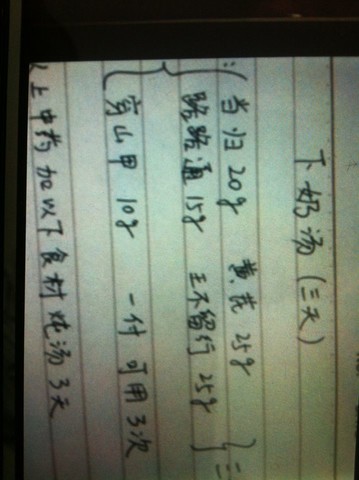 下奶汤(三天)
当归 20g 黄芪 25g
路路通 15g 王不留行 25g
穿山甲 10g 一付可用3次
以上中药加以下食材炖汤3天